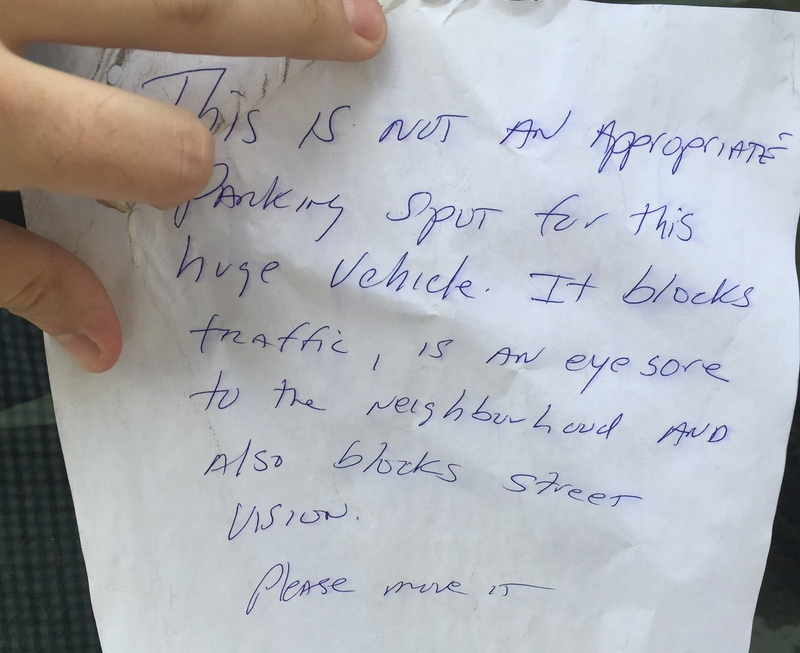 This IS NOT AN AppropriATE
PArking Spot for this
huge Vehicle. It blocks
trAffic, is AN eye sore
to the Neighbourhood AND
Also blocks street
VISION.
PleASE move it